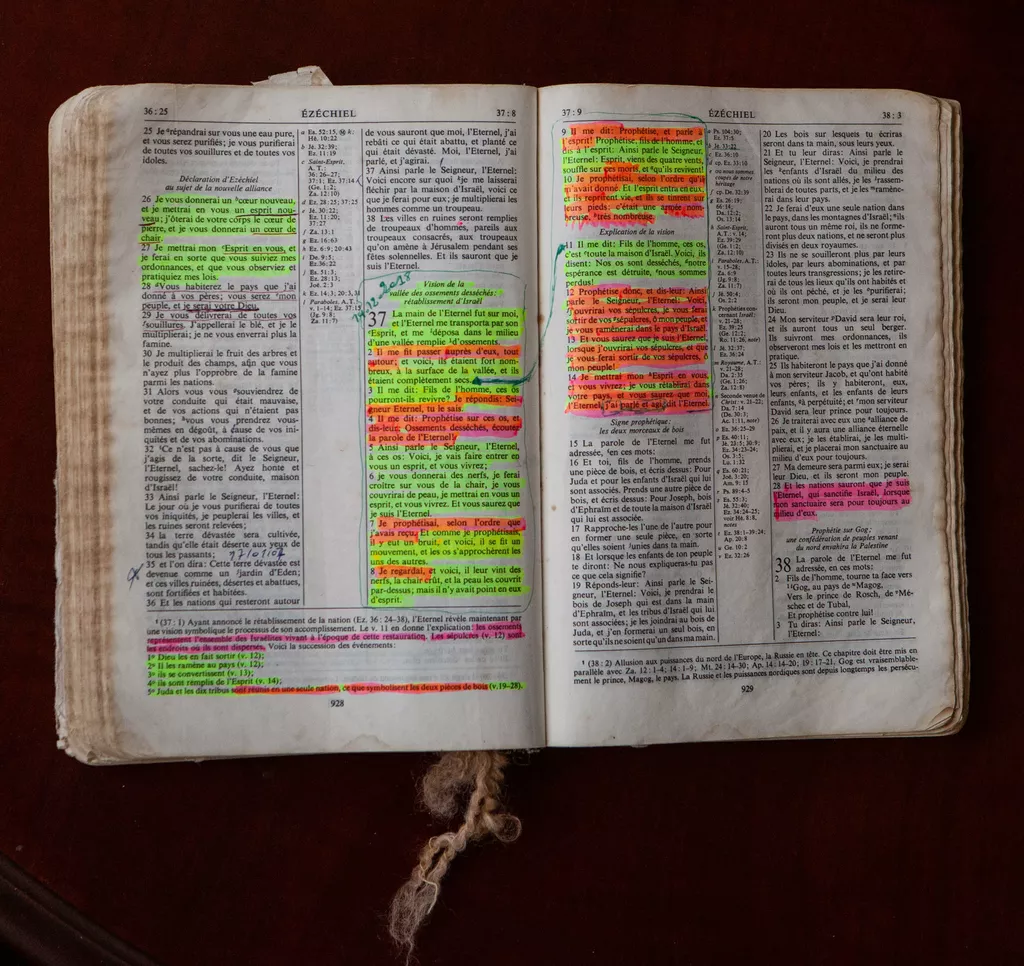 36:25 ÉZÉCHIEL 37:8
25 Je répandrai sur vous une eau pure,
et vous serez purifiés; je vous purifierai
de toutes vos souillures et de toutes vos
idoles.
Déclaration d'Ezéchiel
au sujet de la nouvelle alliance
26 Je vous donnerai un cœur nouveau,
et je mettrai en vous un esprit nou-
veau; j'ôterai de votre corps le cœur de
pierre, et je vous donnerai un cœur de
chair.
27 Je mettrai mon Esprit en vous, et
je ferai en sorte que vous suiviez mes
ordonnances, et que vous observiez et
pratiquiez mes lois.
28 Vous habiterez le pays que j'ai
donné à vos pères; vous serez mon
peuple, et je serai votre Dieu.
29 Je vous délivrerai de toutes vos
souillures. J'appellerai le blé, et je le
multiplierai; je ne vous enverrai plus la
famine.
30 Je multiplierai le fruit des arbres et
le produit des champs, afin que vous
n'ayez plus l'opprobre de la famine
parmi les nations.
31 Alors vous vous souviendrez de
votre conduite qui était mauvaise,
et de vos actions qui n'étaient pas
bonnes; vous vous prendrez vous-
mêmes en dégoût, à cause de vos ini-
quités et de vos abominations.
32 Ce n'est pas à cause de vous que
j'agis de la sorte, dit le Seigneur,
l'Eternel, sachez-le! Ayez honte et
rougissez de votre conduite, maison
d'Israël!
33 Ainsi parle le Seigneur, l'Eternel:
Le jour où je vous purifierai de toutes
vos iniquités, je peuplerai les villes, et
les ruines seront relevées;
34 la terre dévastée sera cultivée,
tandis qu'elle était déserte aux yeux de
tous les passants;
35 et l'on dira: Cette terre dévastée est
devenue comme un jardin d'Eden;
et ces villes ruinées, désertes et abattues,
sont fortifiées et habitées.
36 Et les nations qui resteront autour
de vous sauront que moi, l'Eternel, j'ai
rebâti ce qui était abattu, et planté ce
qui était dévasté. Moi, l'Eternel, j'ai
parlé, et j'agirai.
37 Ainsi parle le Seigneur, l'Eternel:
Voici encore sur quoi je me laisserai
fléchir par la maison d'Israël, voici ce
que je ferai pour eux; je multiplierai les
hommes comme un troupeau.
38 Les villes en ruines seront remplies
de troupeaux d'hommes, pareils aux
troupeaux consacrés, aux troupeaux
qu'on amène à Jérusalem pendant ses
fêtes solennelles. Et ils sauront que je
suis l'Eternel.
Vision de la
vallée des ossements desséchés:
rétablissement d'Israël
37 La main de l'Eternel fut sur moi,
et l'Eternel me transporta par son
Esprit, et me déposa dans le milieu
d'une vallée remplie d'ossements.
2 Il me fit passer auprès d'eux, tout
autour; et voici, ils étaient fort nom-
breux, à la surface de la vallée, et ils
étaient complètement secs.
3 Il me dit: Fils de l'homme, ces os
pourront-ils revivre? Je répondis: Sei-
gneur Eternel, tu le sais.
4 Il me dit: Prophétise sur ces os, et
dis-leur: Ossements desséchés, écoutez
la parole de l'Eternel!
5 Ainsi parle le Seigneur, l'Eternel,
à ces os: Voici, je vais faire entrer en
vous un esprit, et vous vivrez;
6 je vous donnerai des nerfs, je ferai
croître sur vous de la chair, je vous
couvrirai de peau, je mettrai en vous un
esprit, et vous vivrez. Et vous saurez que
je suis l'Eternel.
7 Je prophétisai, selon l'ordre que
j'avais reçu. Et comme je prophétisais,
il y eut un bruit, et voici, il se fit un
mouvement, et les os s'approchèrent les
uns des autres.
8 Je regardai, et voici, il leur vint des
nerfs, la chair crût, et la peau les couvrit
par-dessus; mais il n'y avait point en eux
d'esprit.
¹ (37:1) Ayant annoncé le rétablissement de la nation (Ez. 36:24-38), l'Eternel révèle maintenant par
une vision symbolique le processus de son accomplissement. Le v. 11 en donne l'explication: les ossements
représentent l'ensemble des Israélites vivant à l'époque de cette restauration. Les sépulcres (v. 12) sont
les endroits où ils sont dispersés. Voici la succession des événements:
1° Dieu les en fait sortir (v. 12);
2° Il les ramène au pays (v. 12);
3° ils se convertissent (v. 13);
4° ils sont remplis de l'Esprit (v. 14);
5° Juda et les dix tribus sont réunis en une seule nation, ce que symbolisent les deux pièces de bois (v. 19-28).
928
37:9 ÉZÉCHIEL 38:3
9 Il me dit: Prophétise, et parle à
l'esprit! Prophétise, fils de l'homme, et
dis à l'esprit: Ainsi parle le Seigneur,
l'Eternel: Esprit, viens des quatre vents,
souffle sur ces morts, et qu'ils revivent!
10 Je prophétisai, selon l'ordre qu'il
m'avait donné. Et l'esprit entra en eux,
et ils reprirent vie, et ils se tinrent sur
leurs pieds: c'était une armée nom-
breuse, très nombreuse.
Explication de la vision
11 Il me dit: Fils de l'homme, ces os,
c'est toute la maison d'Israël. Voici, ils
disent: Nos os sont desséchés, notre
espérance est détruite, nous sommes
perdus!
12 Prophétise donc, et dis-leur: Ainsi
parle le Seigneur, l'Eternel: Voici,
j'ouvrirai vos sépulcres, je vous ferai
sortir de vos sépulcres, ô mon peuple, et
je vous ramènerai dans le pays d'Israël.
13 Et vous saurez que je suis l'Eternel,
lorsque j'ouvrirai vos sépulcres, et que
je vous ferai sortir de vos sépulcres, ô
mon peuple!
14 Je mettrai mon Esprit en vous, et
vous vivrez; je vous rétablirai dans
votre pays, et vous saurez que moi,
l'Eternel, j'ai parlé et agi, dit l'Eternel.
Signe prophétique:
les deux morceaux de bois
15 La parole de l'Eternel me fut
adressée, en ces mots:
16 Et toi, fils de l'homme, prends
une pièce de bois, et écris dessus: Pour
Juda et pour les enfants d'Israël qui lui
sont associés. Prends une autre pièce de
bois, et écris dessus: Pour Joseph, bois
d'Ephraïm et de toute la maison d'Israël
qui lui est associée.
17 Rapproche-les l'une de l'autre pour
en former une seule pièce, en sorte
qu'elles soient unies dans ta main.
18 Et lorsque les enfants de ton peuple
te diront: Ne nous expliqueras-tu pas
ce que cela signifie?
19 Réponds-leur: Ainsi parle le Sei-
gneur, l'Eternel: Voici, je prendrai le
bois de Joseph qui est dans la main
d'Ephraïm, et les tribus d'Israël qui lui
sont associées; je les joindrai au bois de
Juda, et j'en formerai un seul bois, en
sorte qu'ils ne soient qu'un dans ma main.
20 Les bois sur lesquels tu écriras
seront dans ta main, sous leurs yeux.
21 Et tu leur diras: Ainsi parle le
Seigneur, l'Eternel: Voici, je prendrai
les enfants d'Israël du milieu des
nations où ils sont allés, je les rassem-
blerai de toutes parts, et je les ramène-
rai dans leur pays.
22 Je ferai d'eux une seule nation dans
le pays, dans les montagnes d'Israël; ils
auront tous un même roi, ils ne for-
meront plus deux nations, et ne seront plus
divisés en deux royaumes.
23 Ils ne se souilleront plus par leurs
idoles, par leurs abominations, et par
toutes leurs transgressions; je les retire-
rai de tous les lieux qu'ils ont habités et
où ils ont péché, et je les purifierai;
ils seront mon peuple, et je serai leur
Dieu.
24 Mon serviteur David sera leur roi,
et ils auront tous un seul berger.
Ils suivront mes ordonnances, ils
observeront mes lois et les mettront en
pratique.
25 Ils habiteront le pays que j'ai donné
à mon serviteur Jacob, et qu'ont habité
vos pères; ils y habiteront, eux,
leurs enfants, et les enfants de leurs
enfants, à perpétuité; et mon serviteur
David sera leur prince pour toujours.
26 Je traiterai avec eux une alliance de
paix, et il y aura une alliance éternelle
avec eux; je les établirai, je les multi-
plierai, et je placerai mon sanctuaire au
milieu d'eux pour toujours.
27 Ma demeure sera parmi eux; je serai
leur Dieu, et ils seront mon peuple.
28 Et les nations sauront que je suis
l'Eternel, qui sanctifie Israël, lorsque
mon sanctuaire sera pour toujours au
milieu d'eux.
Prophétie sur Gog;
une confédération de peuples venant
du nord envahira la Palestine
38 La parole de l'Eternel me fut
adressée, en ces mots:
2 Fils de l'homme, tourne ta face vers
Gog, au pays de Magog,
Vers le prince de Rosch, de Mé-
schec et de Tubal,
Et prophétise contre lui!
3 Tu diras: Ainsi parle le Seigneur,
l'Eternel:
¹ (38:2) Allusion aux puissances du nord de l'Europe, la Russie en tête. Ce chapitre doit être mis en
parallèle avec Za. 12:1-4; 14:1-9; Mt. 24:14-30; Ap. 14:14-20; 19:17-21. Gog est vraisemblable-
ment le prince, Magog, le pays. La Russie et les puissances nordiques sont depuis longtemps les persécu-
929